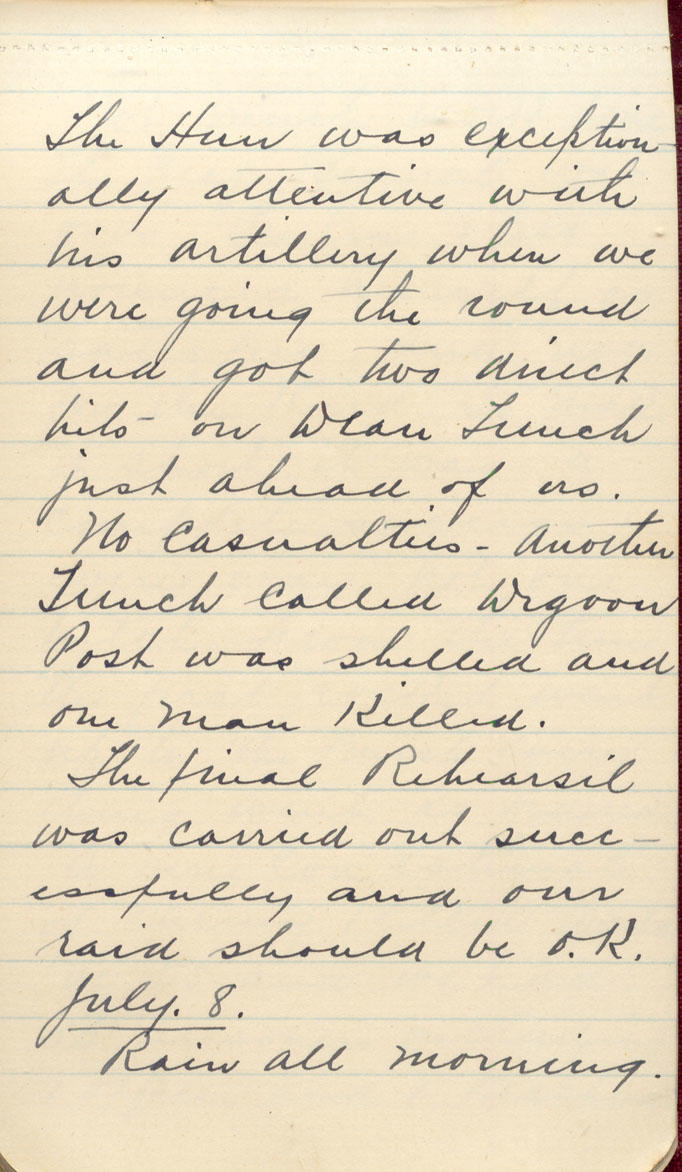 The Hun was exception-
ally attentive with
his artillery when we
were going the round
and got two direct
hits on Dean Trench
just ahead of us.
No Casualties - Another
Trench called Drgoon
Post was shelled and
one man Killed.
The final Rehearsil
was carried out succ-
essfully and our
raid should be O.K.
July. 8.
Rain all morning.